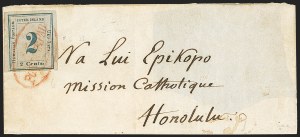 INTER ISLAND
2
2 Cents
Na Lui Epikopo
Mission Catholique
Honolulu